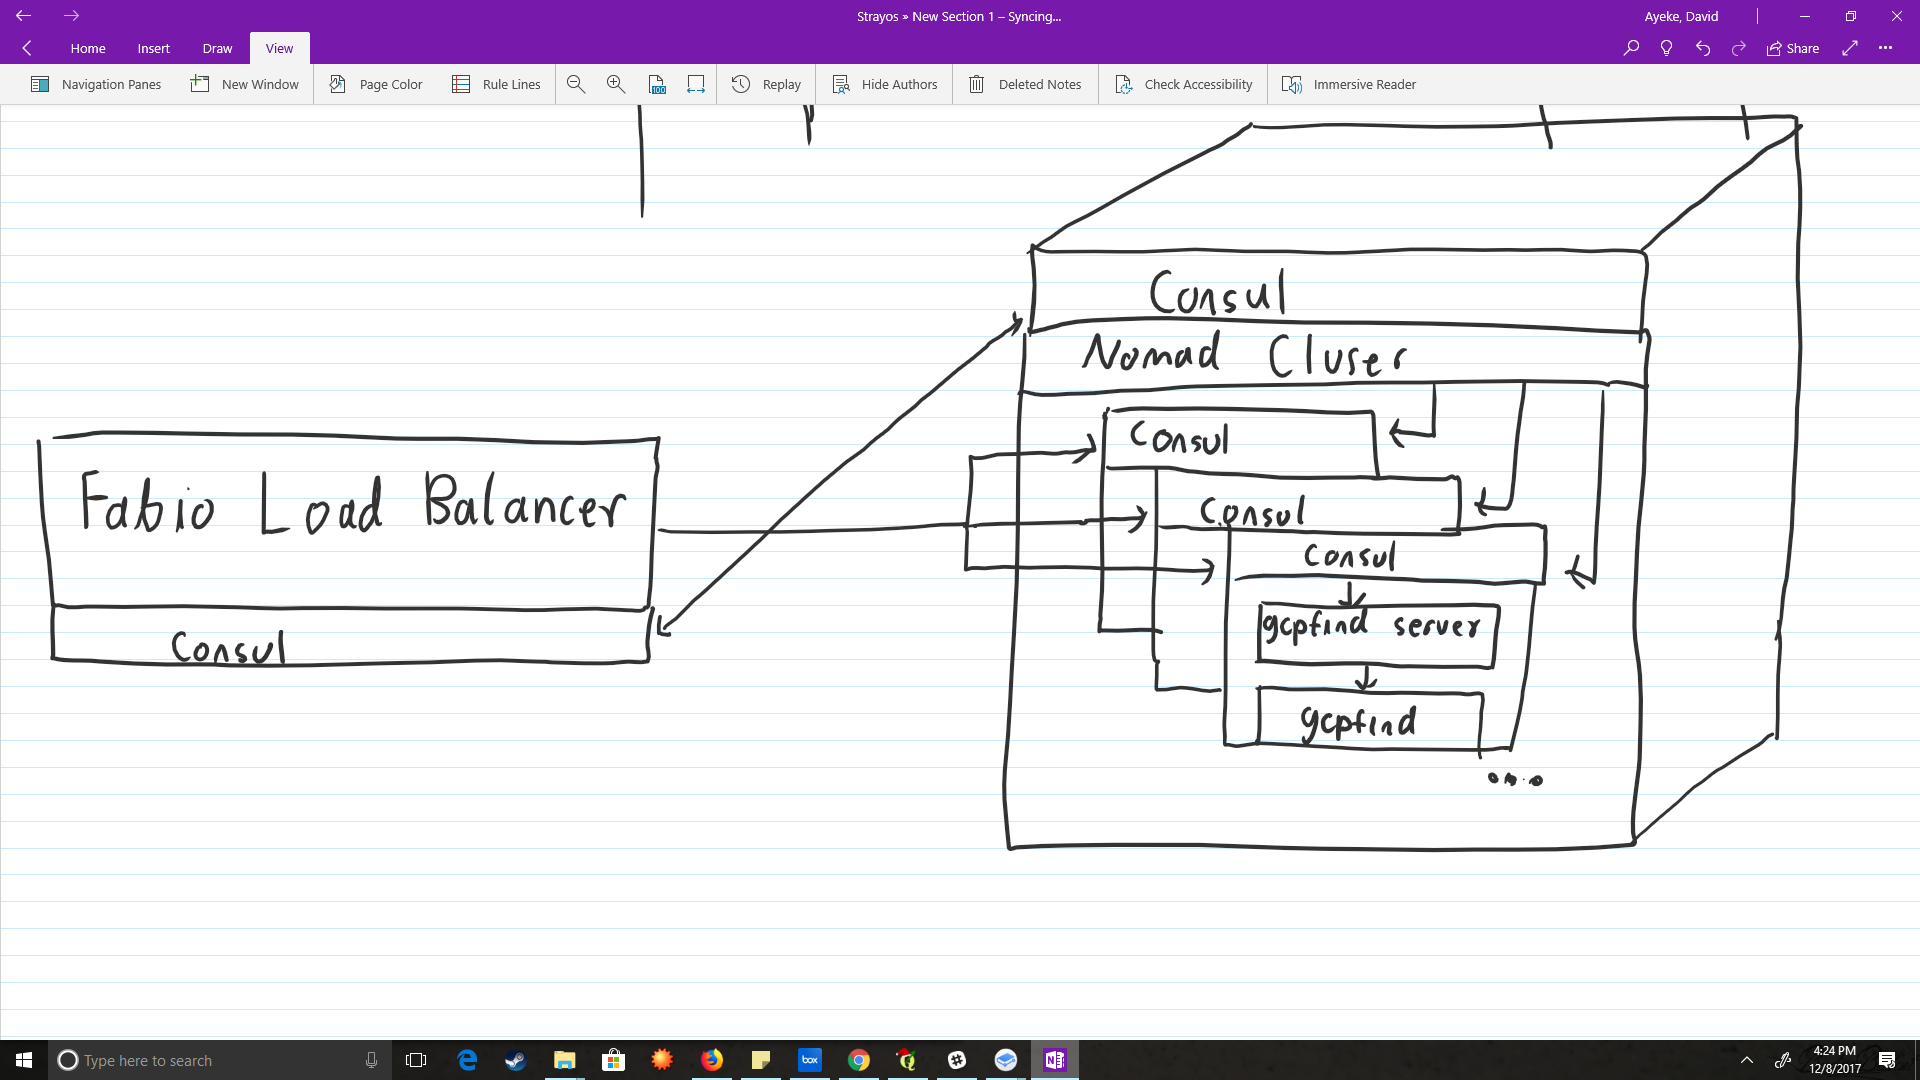 Strayos » New Section 1 – Syncing...
Ayeke, David
Home
Insert
Draw
View
Share
Navigation Panes
New Window
Page Color
Rule Lines
100
Replay
Hide Authors
Deleted Notes
Check Accessibility
Immersive Reader
Consul
Nomad Cluser
Consul
Fabio Load Balancer
Consul
Consul
gcpfind server
Consul
gcpfind
Type here to search
box
4:24 PM
12/8/2017